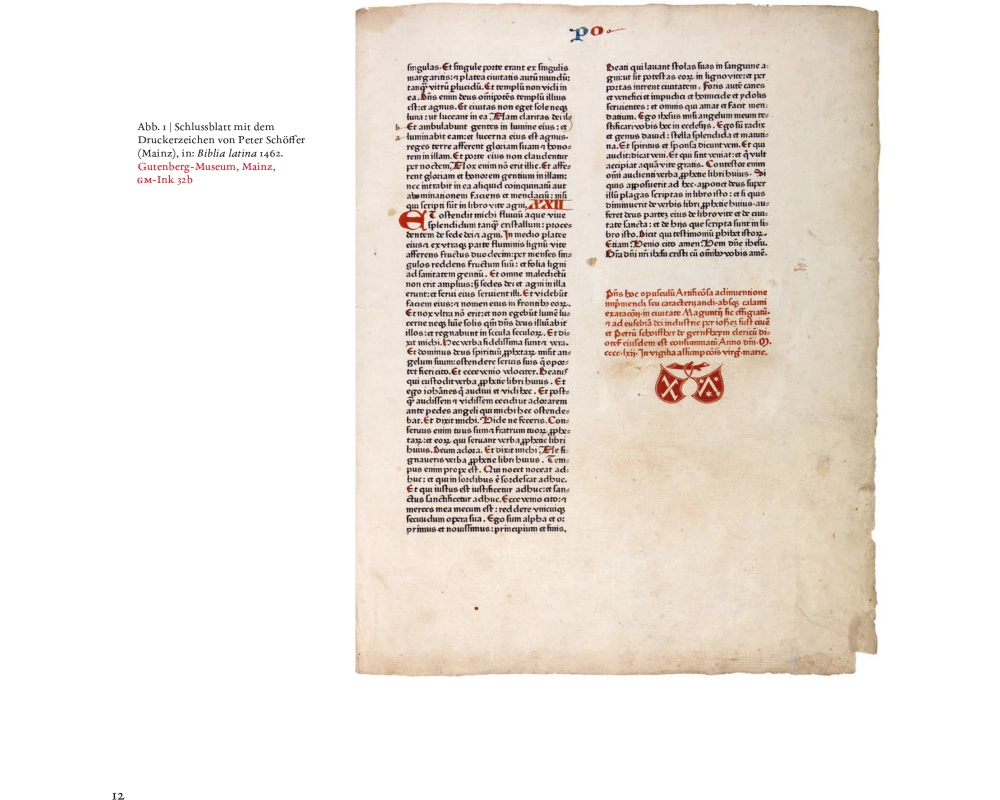 Abb. 1 | Schlussblatt mit dem
Druckerzeichen von Peter Schöffer
(Mainz), in: Biblia latina 1462.
Gutenberg-Museum, Mainz,
GM-Ink 32b
po
singulas. Et singule porte erant ex singulis
margaritis: ⁊ platea ciuitatis aurū mundū:
tanq̄ vitrū plucidū. Et templū non vidi in
ea. Dn̄s enim deus om̄ipotēs templū illius
est: et agnus. Et ciuitas non eget sole neq;
luna: ut luceant in ea Nam claritas dei il-
b Et ambulabunt gentes in lumine eius: et
a luminabit eam: et lucerna eius est agnus.
reges terre afferent gloriam suam ⁊ hono-
rem in illam. Et porte eius non claudentur
per noctem. Nox enim nō erit illic. Et affe-
rent gloriam et honorem gentium in illam:
nec intrabit in ea aliquid coinquinatū aut
abominationem faciens et mendaciū: nisi
qui scripti sūt in libro vite agni. XXII
Et ostendit michi fluuiū aque viue
splendidum tanq̄ cristallum: proce-
dentem de sede dei ⁊ agni. In medio platee
eius ⁊ ex vtraq; parte fluminis lignū vite
afferens fructus duodecim: per menses sin-
gulos reddens fructum suū: et folia ligni
ad sanitatem gentiū. Et omne maledictū
non erit amplius: s; sedes dei et agni in illa
erunt: et serui eius seruient illi. Et videbūt
faciem eius: ⁊ nomen eius in frontibꝰ eoꝝ.
Et nox vltra nō erit: et non egebūt lumē lu-
cerne neq; lūie solis qm̄ dn̄s deus illuīabit
illos: et regnabunt in secula seculoꝝ. Et di-
xit michi. Hec verba fidelissima sunt ⁊ vera.
Et dominus deus spirituū ꝓphetaꝝ misit an-
gelum suum: ostendere seruis suis q̄ opor-
tet fieri cito. Et ecce venio velociter. Beatus
qui custodit verba ꝓphetie libri huius. Et
ego iohānes q̄ audiui et vidi hec. Et post-
q̄ audissem ⁊ vidissem cecidi ut adorarem
ante pedes angeli qui michi hec ostende-
bat. Et dixit michi. Vide ne feceris. Con-
seruus enim tuus sum ⁊ fratrum tuoꝝ ꝓphe-
taꝝ: et eoꝝ qui seruant verba ꝓphetie libri
huius. Deum adora. Et dixit michi Ne si-
gnaueris verba ꝓphetie libri huius. Tem-
pus enim prope est. Qui nocet noceat ad-
huc: et qui in sordibus ē sordescat adhuc.
Et qui iustus est iustificetur adhuc: et san-
ctus sanctificetur adhuc. Ecce venio cito: ⁊
merces mea mecum est: reddere vnicuiq;
secundum opera sua. Ego sum alpha et o:
primus et nouissimus: principium et finis.
Beati qui lauant stolas suas in sanguine a-
gni: ut sit potestas eoꝝ in ligno vite: et per
portas intrent ciuitatem. Foris autē canes
et venefici et impudici et homicide et ydolis
seruientes: et omnis qui amat et facit men-
datium. Ego ihesus misi angelum meum te-
stificari vobis hec in ecclesijs. Ego sū radix
et genus dauid: stella splendida et matuti-
na. Et spiritus et sponsa dicunt veni. Et qui
audit: dicat veni. Et qui sitit veniat: et q̄ vult
accipiat aquā vite gratis. Contestor enim
om̄i audienti verba ꝓphetie libri huius. Si
quis apposuerit ad hec: apponet deus super
illū plagas scriptas in libro isto: et si quis
diminuerit de verbis libri ꝓphetie huius: au-
feret deus partē eius de libro vite et de ciui-
tate sancta: et de hijs que scripta sunt in li-
bro isto. Dicit qui testimoniū phibet istoꝝ.
Etiam. Venio cito amen. Veni dn̄e ihesu.
Gr̄a dn̄i nr̄i ihesu cristi cū om̄ibꝰ vobis amē.
Pn̄s hoc opusculū Artificiosa adinuentione
imp̄mendi seu caracterizandi absq; calami
exaracōn. in ciuitate Magunt̄n sic effigiatū.
⁊ ad eusebiā dei industrie per ioh̄ez fust ciuē
et Petrū schoiffher de gernsheym clericū di-
otes̄ eiusdem est consummatū Anno dn̄i. M.
cccc. lxij. In vigilia assumpcōis virḡ. marie.
12